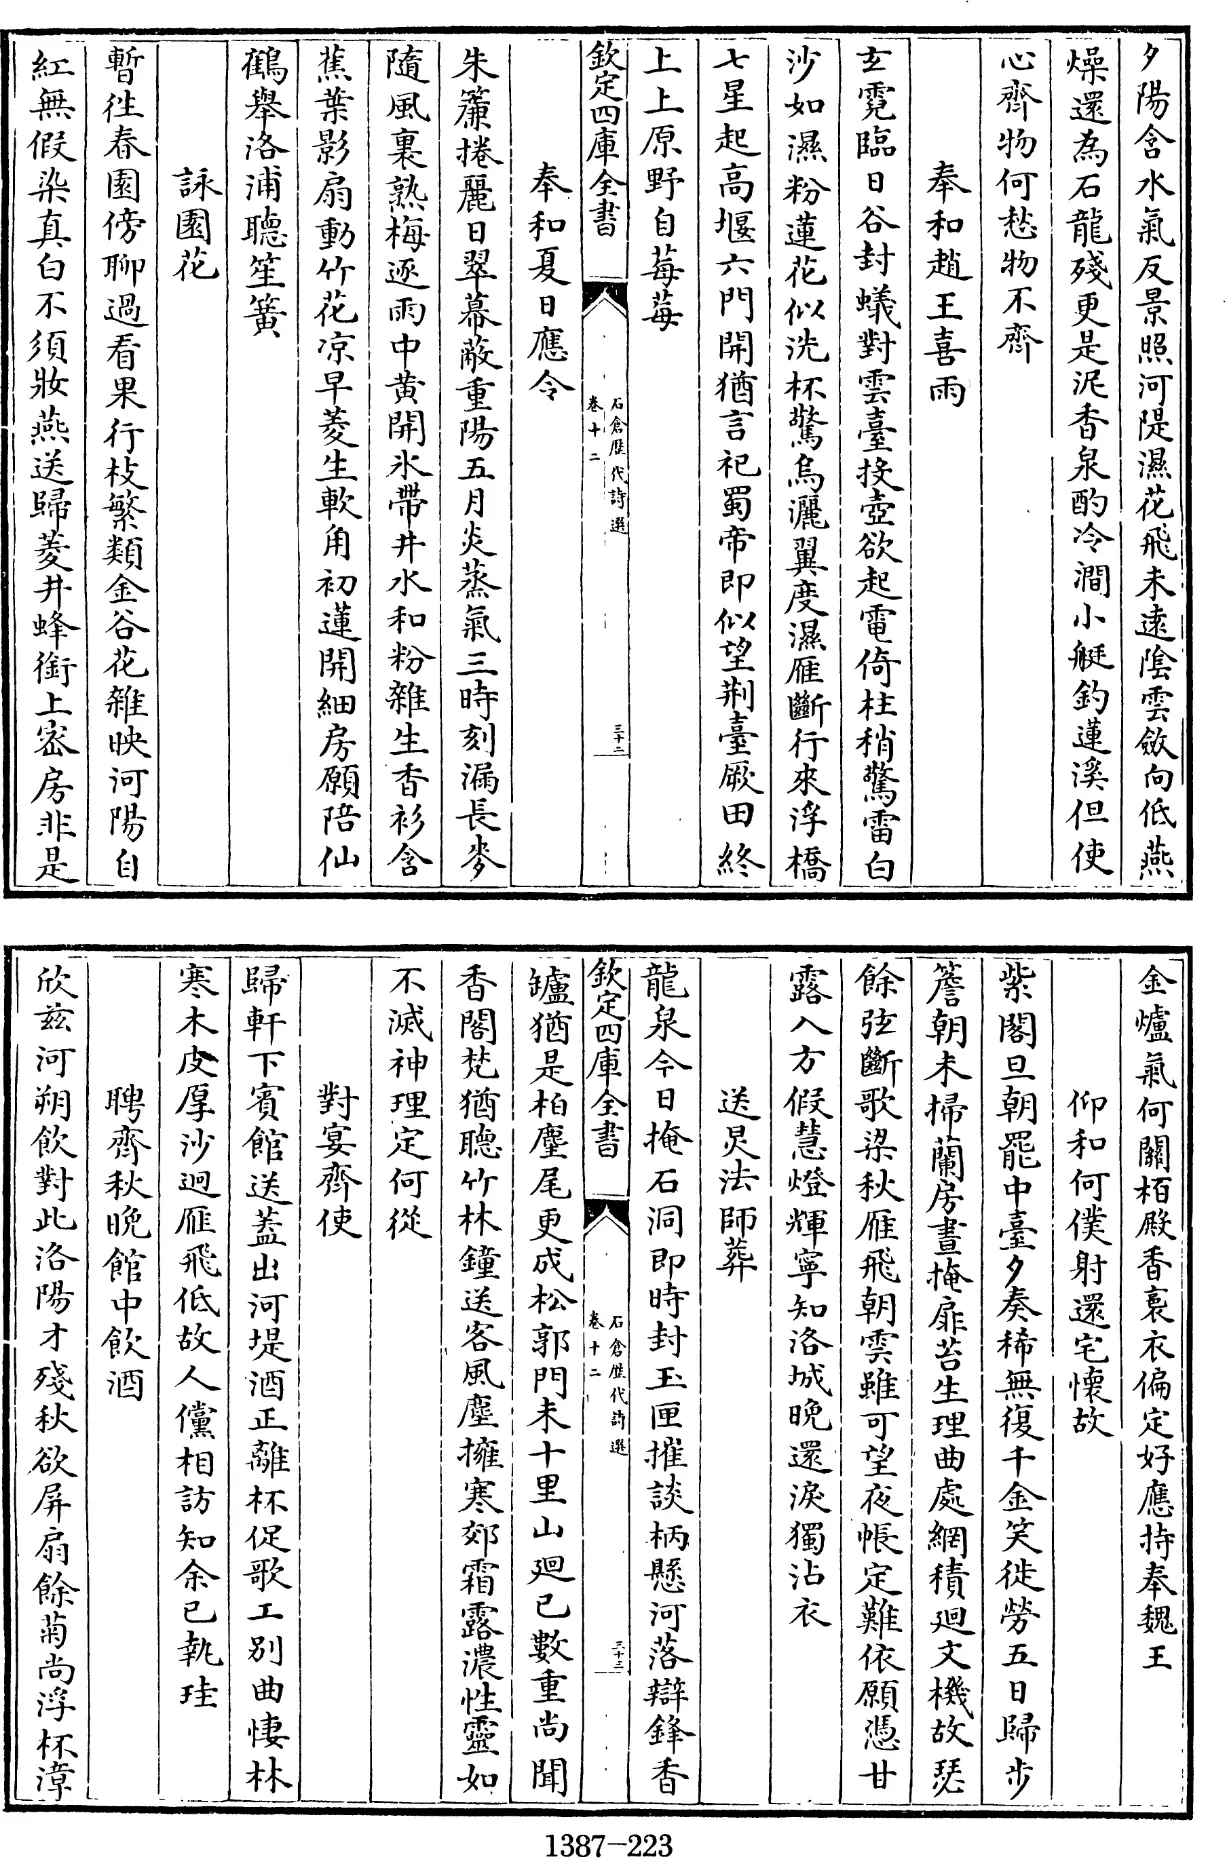 夕陽含水氣反景照河隄濕花飛未逺隂雲斂向低燕
燥還為石龍殘更是泥香泉酌冷澗小艇釣蓮溪但使
心齊物何愁物不齊
奉和趙王喜雨
𤣥霓臨日谷封蟻對雲臺投壺欲起電倚柱稍驚雷白
沙如濕粉蓮花似洗杯驚烏灑翼度濕雁斷行來浮橋
七星起高堰六門開猶言祀蜀帝即似望荆臺厥田終
上上原野自莓莓
欽定四庫全書
石倉歴代詩選
卷十二
三十二
奉和夏日應令
朱簾捲麗日翠幕蔽重陽五月炎蒸氣三時刻漏長麥
隨風裏熟梅逐雨中黄開氷帶井水和粉雜生香衫含
蕉葉影扇動竹花凉早菱生軟角初蓮開細房願陪仙
鶴舉洛浦聽笙簧
詠園花
暫徃春園傍聊過看果行枝繁類金谷花雜映河陽自
紅無假染真白不須妝燕送歸菱井蜂銜上宻房非是
金爐氣何闗栢殿香裛衣偏定好應持奉魏王
仰和何僕射還宅懷故
紫閣旦朝罷中臺夕奏稀無復千金笑徒勞五日歸步
簷朝未掃蘭房晝掩扉苔生理曲處網積廻文機故瑟
餘弦斷歌梁秋雁飛朝雲雖可望夜帳定難依願憑甘
露入方假慧燈輝寧知洛城晚還淚獨沾衣
送炅法師葬
龍泉今日掩石洞即時封玉匣摧談柄懸河落辯鋒香
欽定四庫全書
石倉歴代詩選
卷十二
三十三
罏猶是柏麈尾更成松郭門未十里山廻已數重尚聞
香閣梵猶聽竹林鐘送客風塵擁寒郊霜露濃性靈如
不滅神理定何從
對宴齊使
歸軒下賓館送蓋出河堤酒正離杯促歌工别曲悽林
寒木皮厚沙迥雁飛低故人儻相訪知余已執珪
聘齊秋晩館中飲酒
欣兹河朔飲對此洛陽才殘秋欲屏扇餘菊尚浮杯漳
1387-223